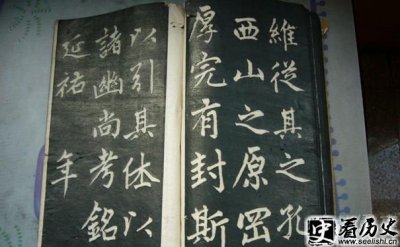 維從其之孔
西山之原岡
厚完有封斯
以引其休以
諸幽尚考銘
延祐年
看历史
www.seelishi.cn